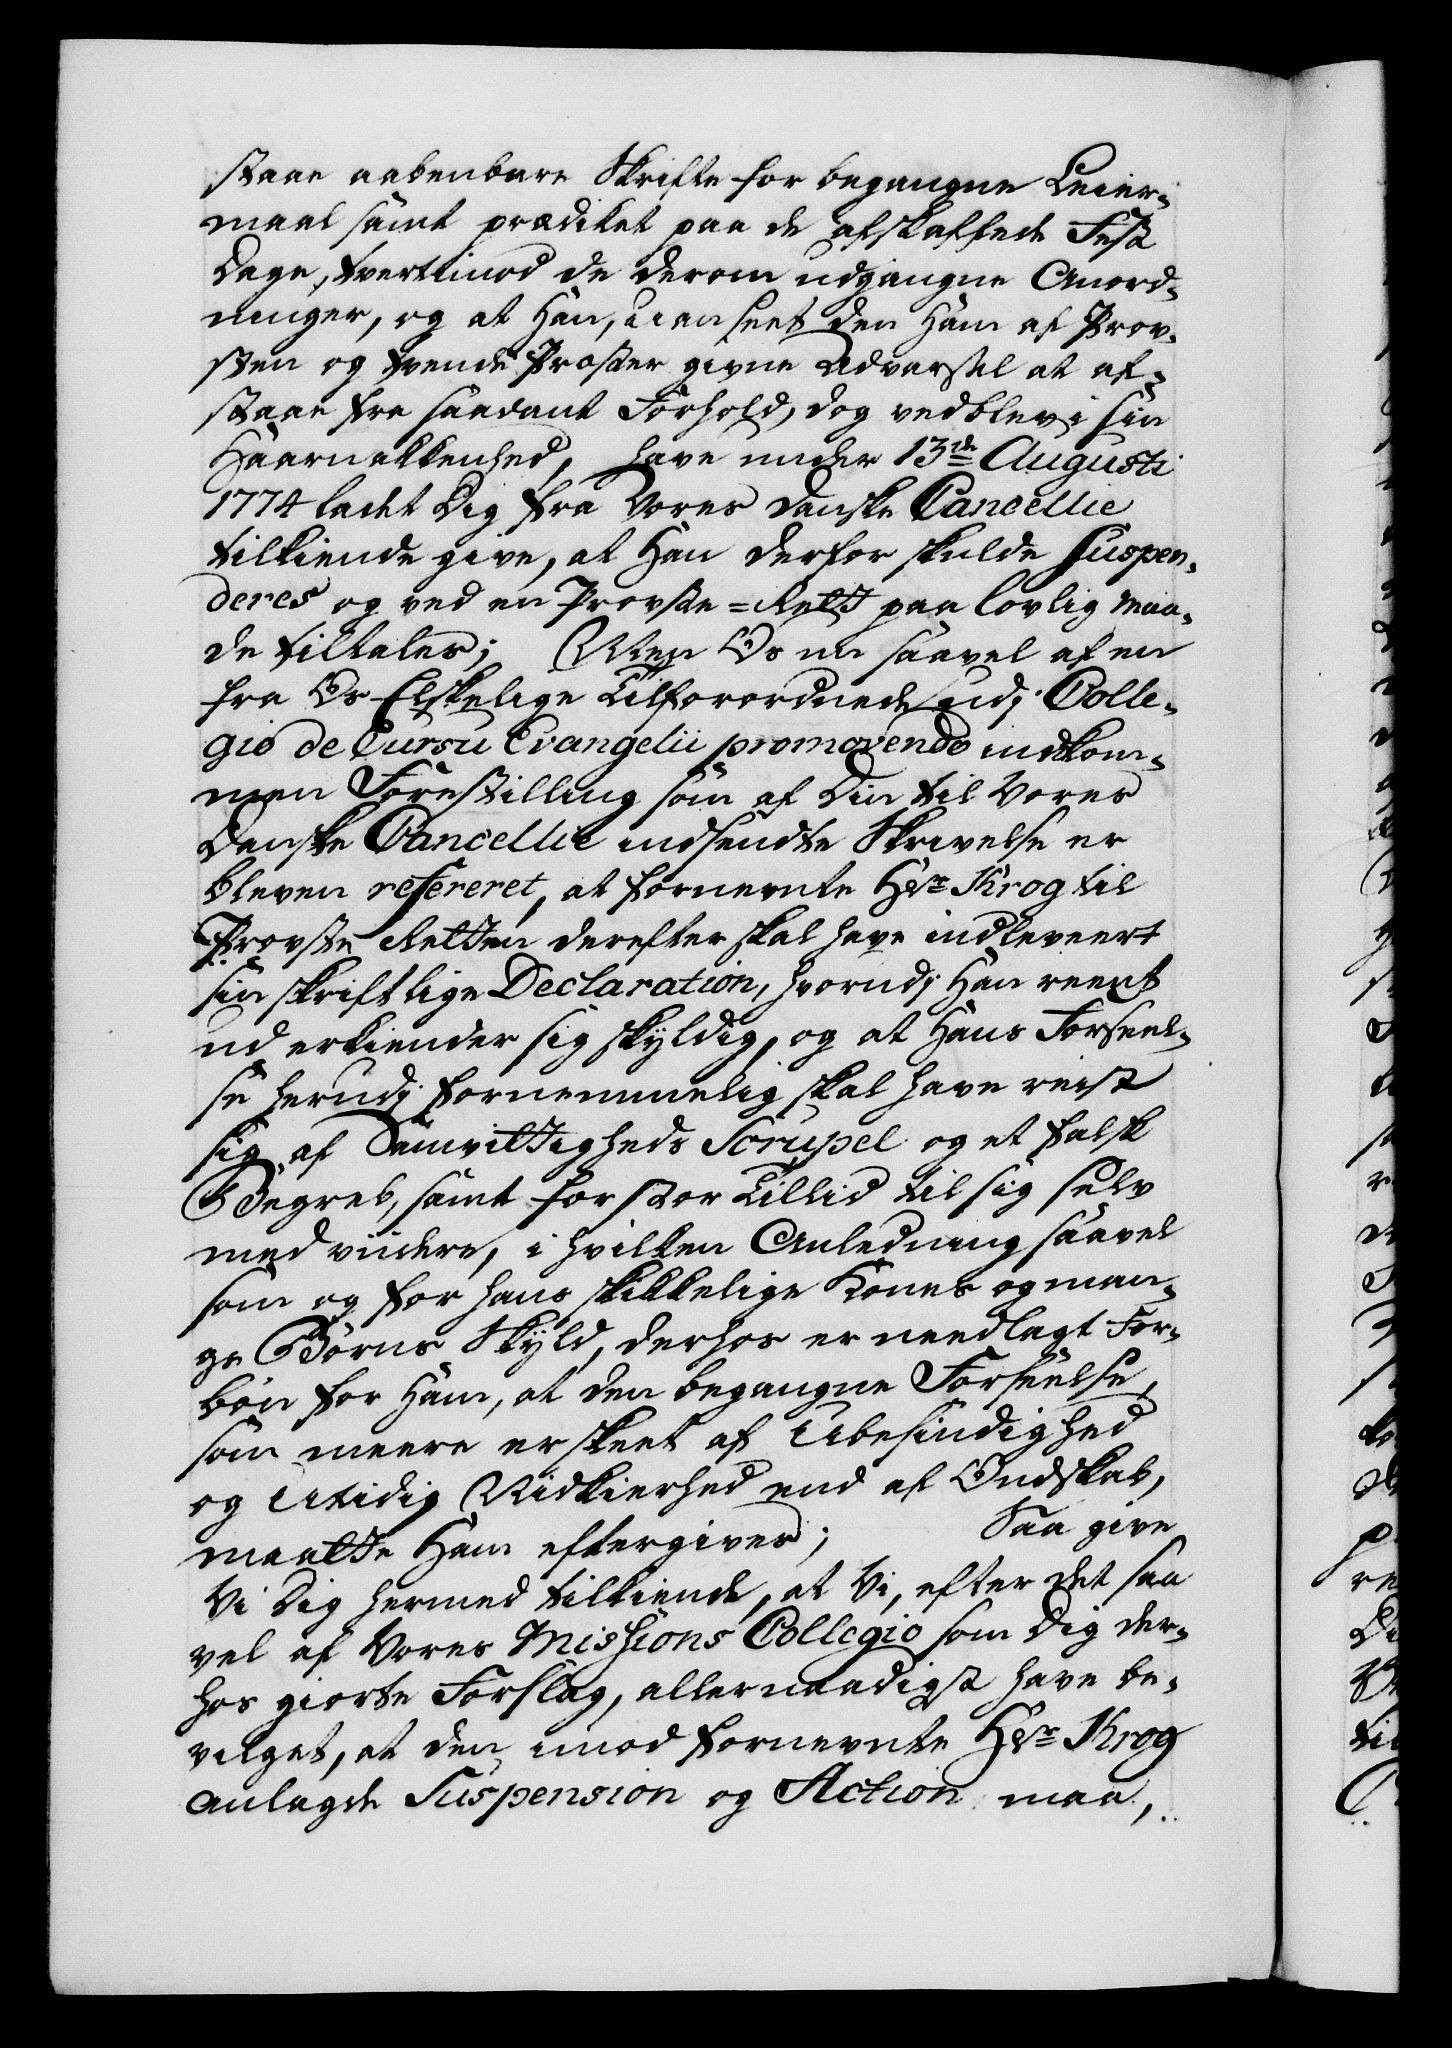 staae aabenbare Skrifte for begangne Leier-
maal samt prædiket paa de afskaffede Fest
Dage, tvertimod de derom udgangne Anord-
ninger, og at Han, uanseet den Ham af Prov-
sten og tvende Præster givne Advarsel at af-
staae fra saadant Forhold, dog vedblev i sin
Haarnakkenhed, have under 13de Augusti
1774 ladet Dig fra Vores Danske Cancellie
tilkiende give, at Han derfor skulde suspen-
deres og ved en Provste-Rett paa lovlig Maa-
de tiltales; Men Os nu saavel af en
fra Os Elskelige Tilforordnede udj Colle-
gio de Cursu Evangelii promovendo indkom-
men Forestilling som af Din til Vores
Danske Cancellie indsendte Skrivelse er
bleven refereret, at fornevnte Hr. Krog til
Provste Retten derefter skal have indleveert
sin skriftlige Declaration, hvorudj Han reent
ud erkiender sig skyldig, og at Hans Forseel-
se herudj fornemmelig skal have reist
sig af Samvittigheds Scrupel og et falsk
Begreb, samt for stor Tillid til sig selv
med viidere, i hvilken Anledning saavel
som og for hans skikkelige Kones og man-
ge Börns Skyld, derhos er needlagt For-
bön for Ham, at den begangne Forseelse,
som meere er skeet af Ubesindighed
og Utidig Nidkierhed end af Ondskab,
maatte Ham eftergives; Saa give
Vi Dig hermed tilkiende, at Vi, efter det saa
vel af Vores Missions Collegio som Dig der-
hos giorte Forslag, allernaadigst have be-
vilget, at den imod fornevnte Hr. Krog
anlagde Suspension og Action maa,